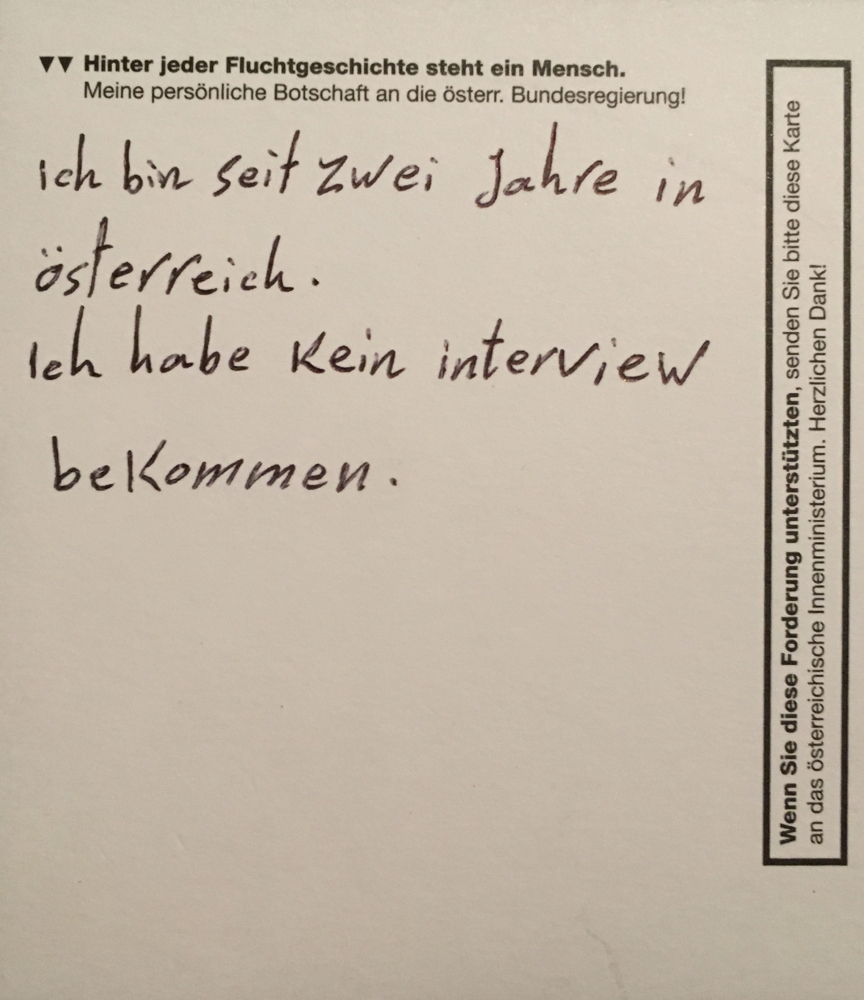 ▼▼ Hinter jeder Fluchtgeschichte steht ein Mensch.
Meine persönliche Botschaft an die österr. Bundesregierung!
ich bin seit zwei Jahre in
österreich.
Ich habe kein interview
bekommen.
Wenn Sie diese Forderung unterstützten, senden Sie bitte diese Karte
an das österreichische Innenministerium. Herzlichen Dank!